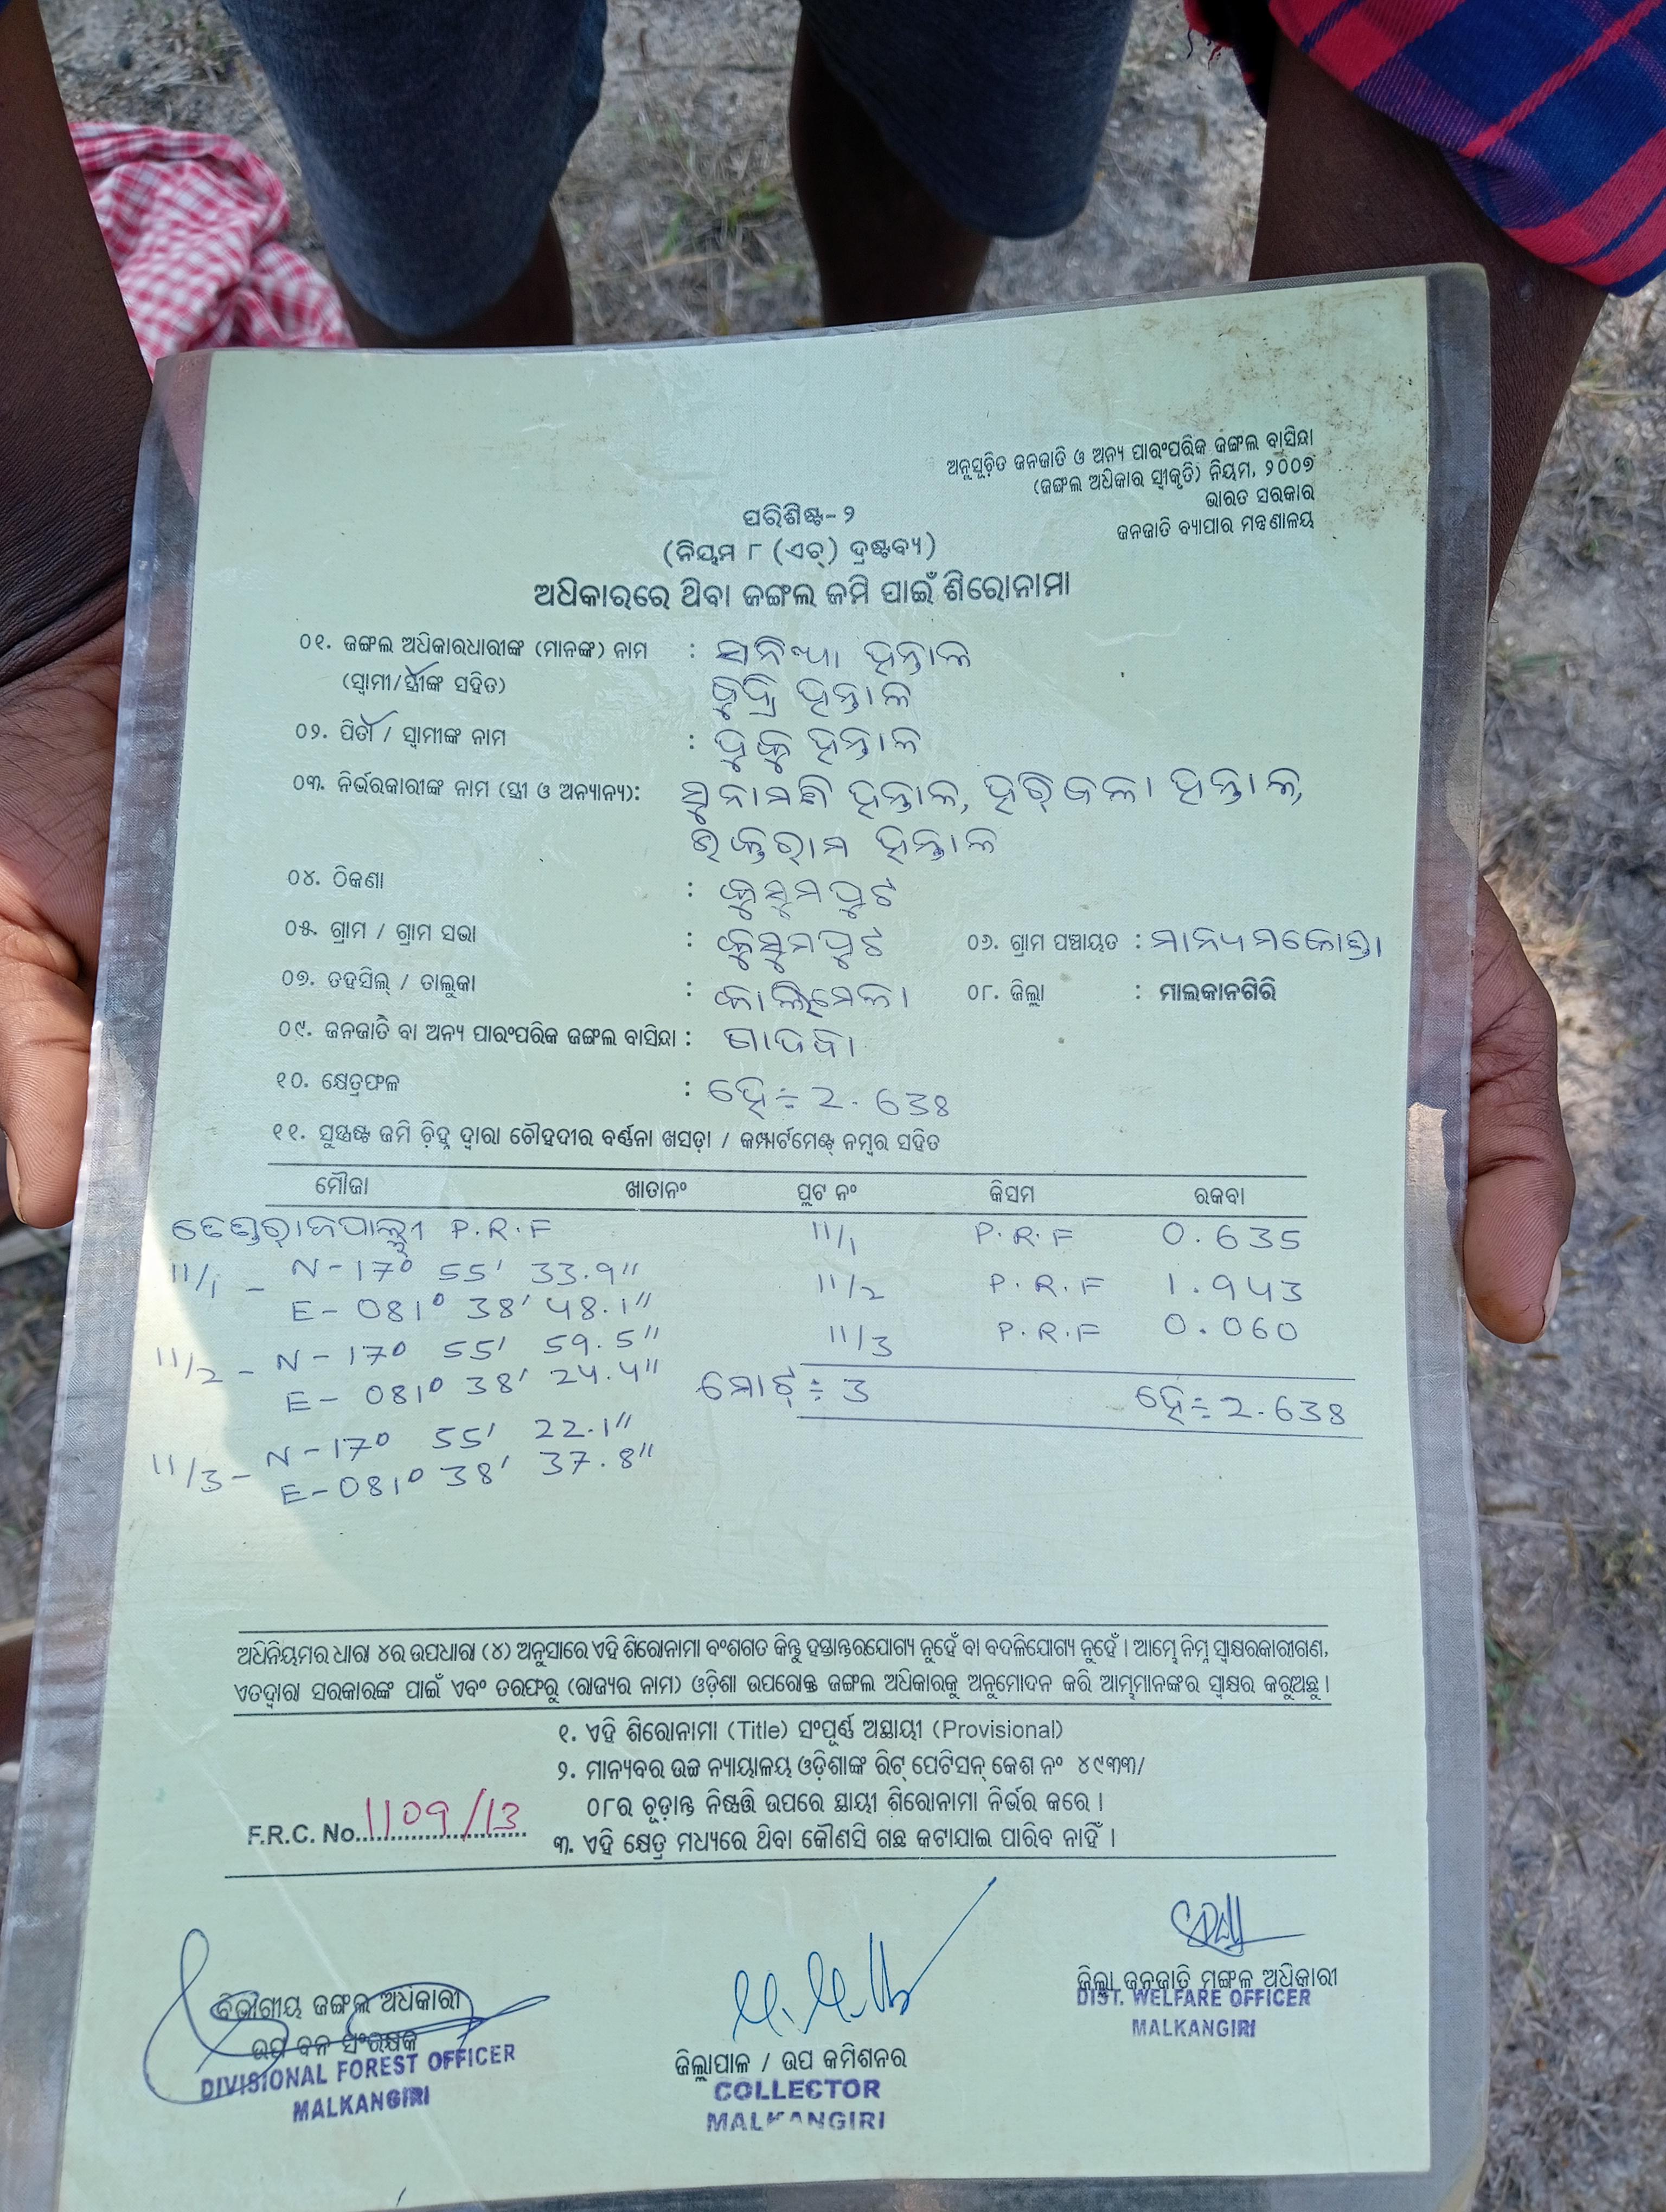 ଅନୁସୂଚିତ ଜନଜାତି ଓ ଅନ୍ୟ ପାରଂପରିକ ଜଙ୍ଗଲ ବାସିନ୍ଦା
(ଜଙ୍ଗଲ ଅଧିକାର ସ୍ୱୀକୃତି) ନିୟମ, ୨୦୦୭
ଭାରତ ସରକାର
ଜନଜାତି ବ୍ୟାପାର ମନ୍ତ୍ରଣାଳୟ
ପରିଶିଷ୍ଟ-୨
(ନିୟମ ୮ (ଏଚ୍) ଦ୍ରଷ୍ଟବ୍ୟ)
ଅଧିକାରରେ ଥିବା ଜଙ୍ଗଲ ଜମି ପାଇଁ ଶିରୋନାମା
୦୧. ଜଙ୍ଗଲ ଅଧିକାରଧାରୀଙ୍କ (ମାନଙ୍କ) ନାମ : ହନ୍ତାଳ
(ସ୍ୱାମୀ/ସ୍ତ୍ରୀଙ୍କ ସହିତ) ବୁଦ୍ରି ହନ୍ତାଳ
୦୨. ପିତା / ସ୍ୱାମୀଙ୍କ ନାମ : ହନ୍ତାଳ
୦୩. ନିର୍ଭରକାରୀଙ୍କ ନାମ (ସ୍ତ୍ରୀ ଓ ଅନ୍ୟାନ୍ୟ): ହନ୍ତାଳ, ହନ୍ତାଳ,
ହନ୍ତାଳ
୦୪. ଠିକଣା : କୁସୁମପୁଟ
୦୫. ଗ୍ରାମ / ଗ୍ରାମ ସଭା : କୁସୁମପୁଟ ୦୬. ଗ୍ରାମ ପଞ୍ଚାୟତ : ମାନ୍ୟମକୋଣ୍ଡା
୦୭. ତହସିଲ୍ / ତାଲୁକା : କାଲିମେଳା ୦୮. ଜିଲ୍ଲା : ମାଲକାନଗିରି
୦୯. ଜନଜାତି ବା ଅନ୍ୟ ପାରଂପରିକ ଜଙ୍ଗଲ ବାସିନ୍ଦା : ଗାଦବା
୧୦. କ୍ଷେତ୍ରଫଳ : ହେ÷ 2.638
୧୧. ସୁସ୍ପଷ୍ଟ ଜମି ଚିହ୍ନ ଦ୍ୱାରା ଚୌହଦୀର ବର୍ଣ୍ଣନା ଖସଡ଼ା / କମ୍ପାର୍ଟମେଣ୍ଟ୍ ନମ୍ବର ସହିତ
ମୌଜା ଖାତାନଂ ପ୍ଲଟ ନଂ କିସମ ରକବା
P.R.F 11/1 P.R.F 0.635
11/1 - N-17° 55' 33.9" 11/2 P.R.F 1.943
E-081° 38' 48.1" 11/3 P.R.F 0.060
11/2 - N-17° 55' 59.5"
E-081° 38' 24.4" ମୋଟ୍ ÷ 3 ହେ÷2.638
11/3 - N-17° 55' 22.1"
E-081° 38' 37.8"
ଅଧିନିୟମର ଧାରା ୪ର ଉପଧାରା (୪) ଅନୁସାରେ ଏହି ଶିରୋନାମା ବଂଶଗତ କିନ୍ତୁ ହସ୍ତାନ୍ତରଯୋଗ୍ୟ ନୁହେଁ ବା ବଦଳିଯୋଗ୍ୟ ନୁହେଁ । ଆମ୍ଭେ ନିମ୍ନ ସ୍ୱାକ୍ଷରକାରୀଗଣ,
ଏତଦ୍ୱାରା ସରକାରଙ୍କ ପାଇଁ ଏବଂ ତରଫରୁ (ରାଜ୍ୟର ନାମ) ଓଡ଼ିଶା ଉପରୋକ୍ତ ଜଙ୍ଗଲ ଅଧିକାରକୁ ଅନୁମୋଦନ କରି ଆମ୍ଭମାନଙ୍କର ସ୍ୱାକ୍ଷର କରୁଅଛୁ ।
୧. ଏହି ଶିରୋନାମା (Title) ସଂପୂର୍ଣ୍ଣ ଅସ୍ଥାୟୀ (Provisional)
୨. ମାନ୍ୟବର ଉଚ୍ଚ ନ୍ୟାୟାଳୟ ଓଡ଼ିଶାଙ୍କ ରିଟ୍ ପେଟିସନ୍ କେଶ ନଂ ୪୯୩୩/
୦୮ର ଚୂଡ଼ାନ୍ତ ନିଷ୍ପତ୍ତି ଉପରେ ସ୍ଥାୟୀ ଶିରୋନାମା ନିର୍ଭର କରେ ।
F.R.C. No. 1109/13
୩. ଏହି କ୍ଷେତ୍ର ମଧ୍ୟରେ ଥିବା କୌଣସି ଗଛ କଟାଯାଇ ପାରିବ ନାହିଁ ।
ବିଭାଗୀୟ ଜଙ୍ଗଲ ଅଧିକାରୀ
ଉପ ବନ ସଂରକ୍ଷକ
DIVISIONAL FOREST OFFICER
MALKANGIRI
ଜିଲ୍ଲାପାଳ / ଉପ କମିଶନର
COLLECTOR
MALKANGIRI
ଜିଲ୍ଲା ଜନଜାତି ମଙ୍ଗଳ ଅଧିକାରୀ
DIST. WELFARE OFFICER
MALKANGIRI